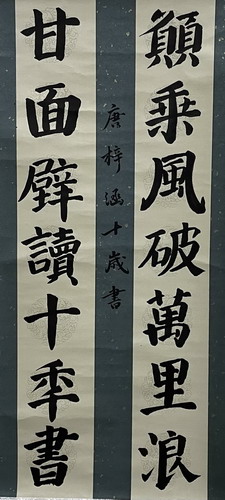 願乘風破萬里浪
甘面壁讀十年書
唐梓涵十歲書